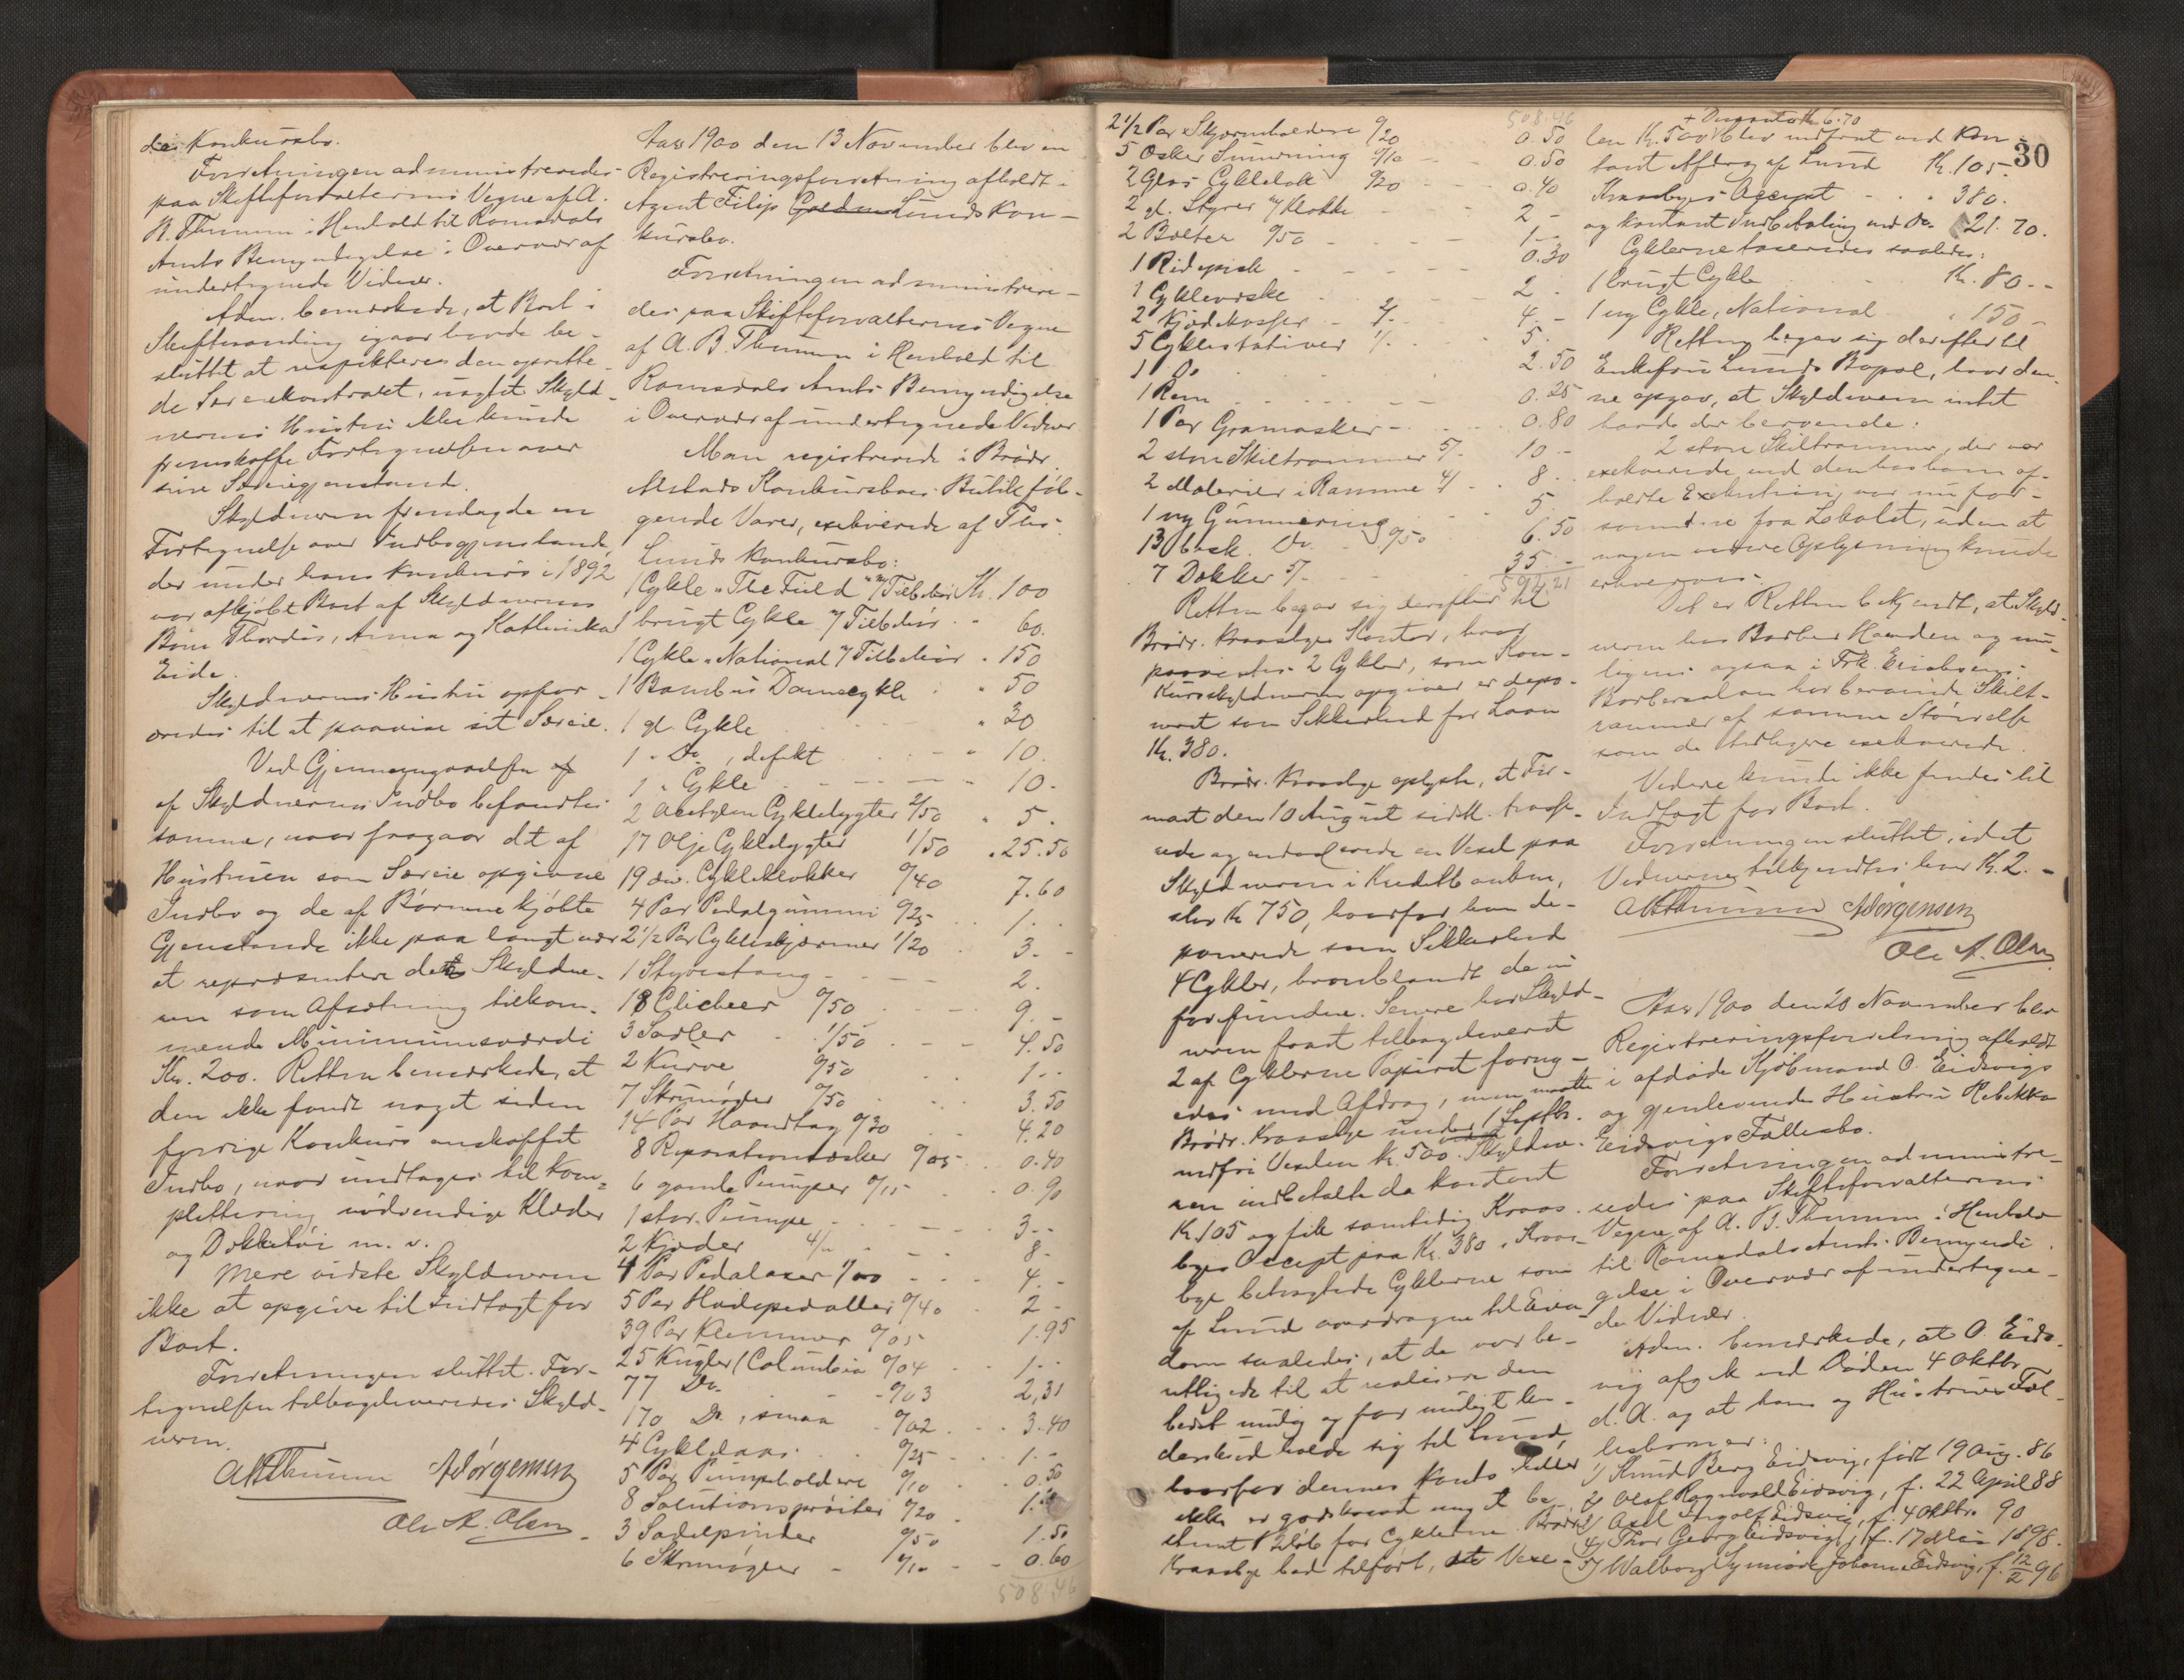 des Konkursbo.
Forretningen administreredes
paa Skifteforvalterens Vegne af A.
B. Thumm i Henhold til Romsdals
Amts Bemyndigelse i Overvær af
undertegnede Vidner.
Adm. bemærkede, at Boet i
Skiftesamling igaar havde be-
sluttet at respektere den oprette-
de Særeiekontrakt, uagtet Skyld-
nerens Hustru ikke kunde
fremskaffe Fortegnelsen over
sine Særeiegjenstand.
Skyldneren fremlagde en
Fortegnelse over Indbogjenstande,
der under hans Konkurs i 1892
var afkjøbt Boet af Skyldnerens
Børn Thordis, Anna og Kathinka
Eide.
Skyldnerens Hustru opfor-
dredes til at paavise sit Særeie.
Ved Gjennemgaaelsen
af Skyldnerens Indbo befandtes
samme, naar fragaar det af
Hustruen som Særeie opgivne
Indbo og de af Børnene kjøbte
Gjenstande ikke paa langt nær
at repræsentere det Skyldne-
ren som Afsætning tilkom-
mende Minimumsværdi
Kr. 200. Retten bemærkede, at
den ikke fandt noget siden
forrige Konkurs anskaffet
Indbo, naar undtages til Kom-
plettering nødvendige Klæder
og Dækketøi m. v.
Mere vidste Skyldneren
ikke at opgive til Indtægt for
Boet.
Forretningen sluttet. For-
tegnelsen tilbageleveredes Skyld-
neren.
ABThumm AJörgensen
Ole A. Olsen
Aar 1900 den 13 November blev en
Registreringsforretning afholdt i
Agent Filip Lunds Kon-
kursbo.
Forretningen administrere-
des paa Skifteforvalterens Vegne
af A. B. Thumm i Henhold til
Romsdals Amts Bemyndigelse
i Overvær af undertegnede Vidner
Man registrerede i Brødr.
Alstads Konkursboes Butik føl-
gende Varer, exekverede af Ths.
Lunds Konkursbo:
1 Cykle "The Field" m/Tilbehør Kr. 100
1 brugt Cykle m/Tilbehør " 60.
1 Cykle "National m/Tilbehør " 150
1 Bambus Damecykle " 50
1 gl. Cykle " 30
1 " Do, defekt " 10.
1 " Cykle " 10.
2 Acetylen Cyklelygter 2/50 " 5.
17 Olje Cyklelygter 1/50 " 25.50
19 div. Cykleklokker 0/40 7.60
4 Par Pedalgummi 0/25 1..
2 1/2 Par Cykleskjærmer 1/20 3.-
1 Styrestang 2.
18 Clicheer 0/50 9.-
3 Sadler 1/50 4.50
2 Kurve 0/50 1..
7 Skrunøgler 0/50 3.50
14 Par Haandtag 0/30 4.20
8 Reparationsæsker 0/05 0.40
6 gamle Pumper 0/15 0.90
1 stor Pumpe 3--
2 Kjæder 4/- 8-
4 Par Pedalaxer 1/00 4.-
5 Par Hælepedaller 0/40 2-
39 Par Klemmer 0/05 1.95
25 Kugler (Columbia 0/04 1..
77 Do. 0/03 2,31
170 Do., smaa 0/02 3.40
4 Cyklelaas 0/25 1.-
5 Par Pumpeholdere 0/10 0.50
8 Solutionsprøiter 0/20 1.
3 Sadelpinder 0/50 1.50
6 Skrunøgler 0/10 0.60
508.46
508.46
2 1/2 Par Skjærmholdere 0/20 0.50
5 Æsker Smurning 0/10 0.50
2 Glas Cyklelak 0/20 0.40
2 gl. Styrer m/Klokke 2-
2 Bælter 0/50 1--
1 Ridepisk 0.30
1 Cyklevæske 2-
2 2/- 4.-
5 Cyklestativer 1/. 5.
1 Do 2.50
1 Rem 0.25
1 Par Gramasker 0.80
2 store Skiltrammer 5/- 10-
2 Malerier i Ramme 4/ 8.
1 ny Gummering 5.
13 Do 0/50 6.50
7 Dækker 5/- 35.-
592.21
Retten begav sig derefter til
Brødr. Kraasbyes Kontor, hvor
paavistes 2 Cykler, som Kon-
kursskyldneren opgiver er depo-
neret som Sikkerhed for Laan
Kr. 380.
Brødr. Kraasbye oplyste, at Fir-
maet den 10 August sidstl. trasse-
rede og endosserede en Vexel paa
Skyldneren i Kreditbanken,
stor Kr 750, hvorfor han de-
ponerede som Sikkerhed
4 Cykler, hvoriblandt de nu
forefundne. Senere har Skyld-
neren faaet tilbageleveret
2 af Cyklerne Papiret forny-
edes med Afdrag, men maatte
Brødr. Kraasbye under 1 Septbr.
indfri Vexelen Kr. 500. Skyldne-
ren indbetalte da kontant
Kr. 105 og fik samtidig Kraas-
byes Accept paa Kr. 380. Kraas-
bye betragtede Cyklerne som
af Lund overdragne til Eien-
dom saaledes, at de var be-
rettiget til at realisere den
bedst mulig og for muligt
holde sig til Lund,
hvorfor dennes Konto heller
ikke er godskrevet noget be-
stemt Beløb for Cyklerne. Brødr.
Kraasbye bad tilført, at Vexe-
+ Diskonto Kr. 6.70
len Kr. 500 blev indfriet ved Kon-
tant Afdrag af Lund Kr. 105-
Kraasbyes Accept " 380.
og kontant Indbetaling ved Do. 21.70.
Cyklerne taxeredes saaledes:
1 brugt Cykle Kr. 80--
1 ny Cykle, National " 150-
Retten begav sig derefter til
Enkefru Lunds Bopæl, hvor den-
ne opgav, at Skyldneren intet
havde der beroende:
2 store Skiltrammer, der var
exekverede ved den hos ham af-
holdte Exekution var nu for-
svundne fra Lokalet, uden at
nogen nærmere Oplysning kunde
erhverves.
Det er Retten bekjendt, at Skyld-
neren hos Barber Handen og mu-
ligens ogsaa i Frk. Eriksens
Barbersalon har beroende Skilt-
rammer af samme Størrelse
som de tidligere exekverede.
Videre kunde ikke findes til
Indtægt for Boet.
Forretningen sluttet, idet
Vidnerne tilkjendtes hver Kr. 2.-
ABThumm AJörgensen
Ole A. Olsen
30
Aar 1900 den 20 November blev
Registreringsforretning afholdt
i afdøde Kjøbmand O. Eidsvigs
og gjenlevende Hustru Rebekka
Eidsvigs Fællesbo.
Forretningen administre-
redes paa Skifteforvalterens
Vegne af A. B. Thumm i Henhold
til Romsdals Amts Bemyndi-
gelse i Overvær af undertegne-
de Vidner.
Adm. bemærkede, at O. Eids-
vig afgik ved Døden 4 Oktbr
d. A. og at hans og Hustrues Fæl-
lesbørn er:
1) Knud Berg Eidsvig, født 19 Aug. 86
2) Olaf Ragnvald Eidsvig, f. 22 April 88
3) Axel Ingolf Eidsvig, f. 4 Oktbr. 90
4) Thor Georg Eidsvig, f. 17 Mai 1898.
5) Walborg Synnøve Johanne Eidsvig, f. 12/2 96